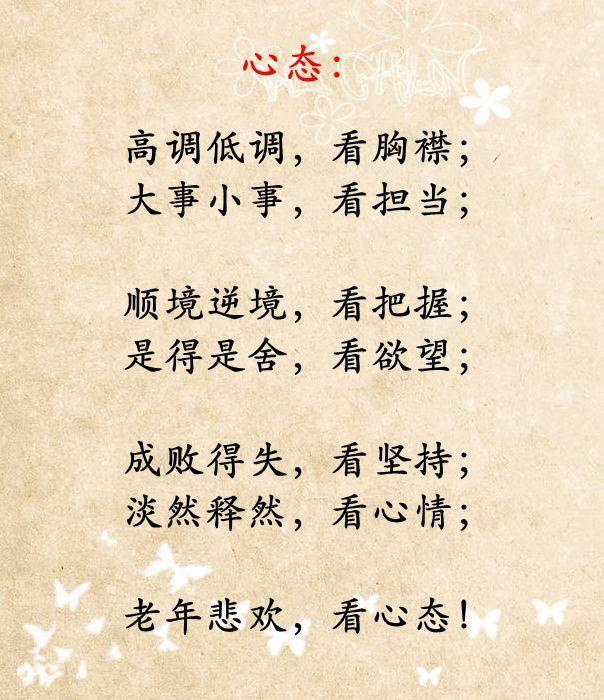 心态：
高调低调，看胸襟；
大事小事，看担当；
顺境逆境，看把握；
是得是舍，看欲望；
成败得失，看坚持；
淡然释然，看心情；
老年悲欢，看心态！